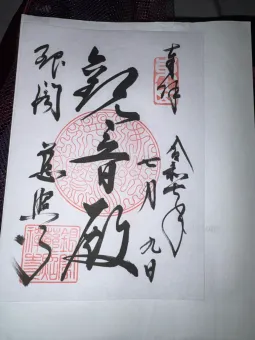 奉拝
令和七年
七月九日
観音殿
銀閣
慈照寺